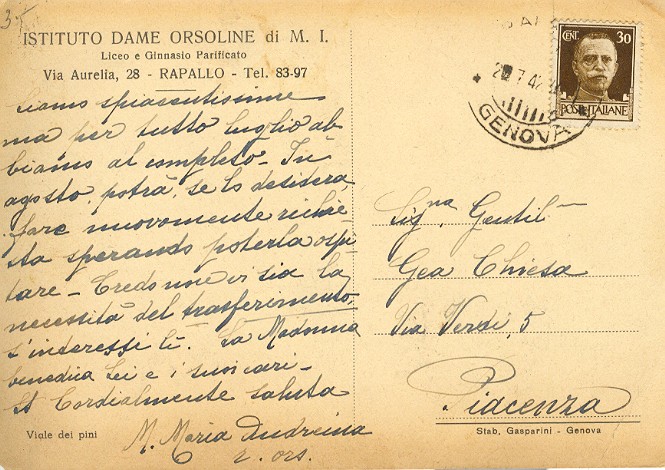 35
ISTITUTO DAME ORSOLINE di M. I.
Liceo e Ginnasio Parificato
Via Aurelia, 28 - RAPALLO - Tel. 83-97
Siamo spiacentissime
ma per tutto luglio ab
biamo al completo - In
agosto, potrà, se lo desidera,
fare nuovamente richie
sta sperando poterla ospi
tare - Credo non vi sia la
necessità del trasferimento,
s'interessi lì. La Madonna
benedica Lei e i suoi cari -
Cordialmente saluta
M. Maria Andreina
r. ors.
Viale dei pini
CENT. 30
POSTE ITALIANE
7 42
GENOVA
Sig.na Gentil
Gea Chiesa
Via Verdi, 5
Piacenza
Stab. Gasparini - Genova